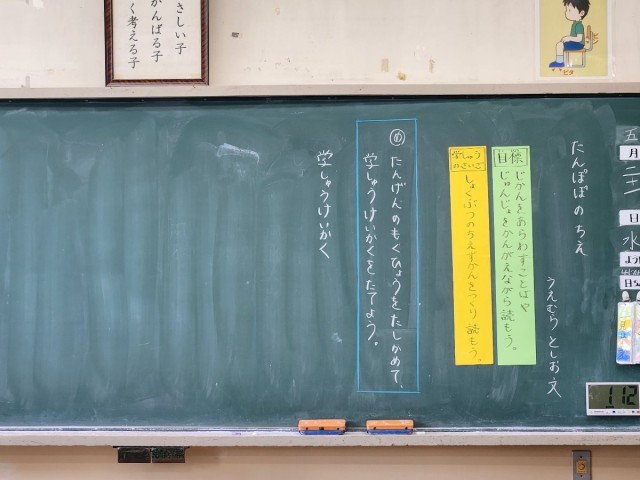 五
月
二十
日
水
よう
日ちょく
たんぽぽ の ちえ
うえむら としお 文
目標
じかんをあらわすことばや
じゅんじょをかんがえながら読もう。
学しゅう
のさいご
しょくぶつのちえずかんをつくり読もう。
め
たんげんのもくひょうをたしかめて、
学しゅうけいかくをたてよう。
学しゅうけいかく
さしい子
がんばる子
く考える子
ピタ
112